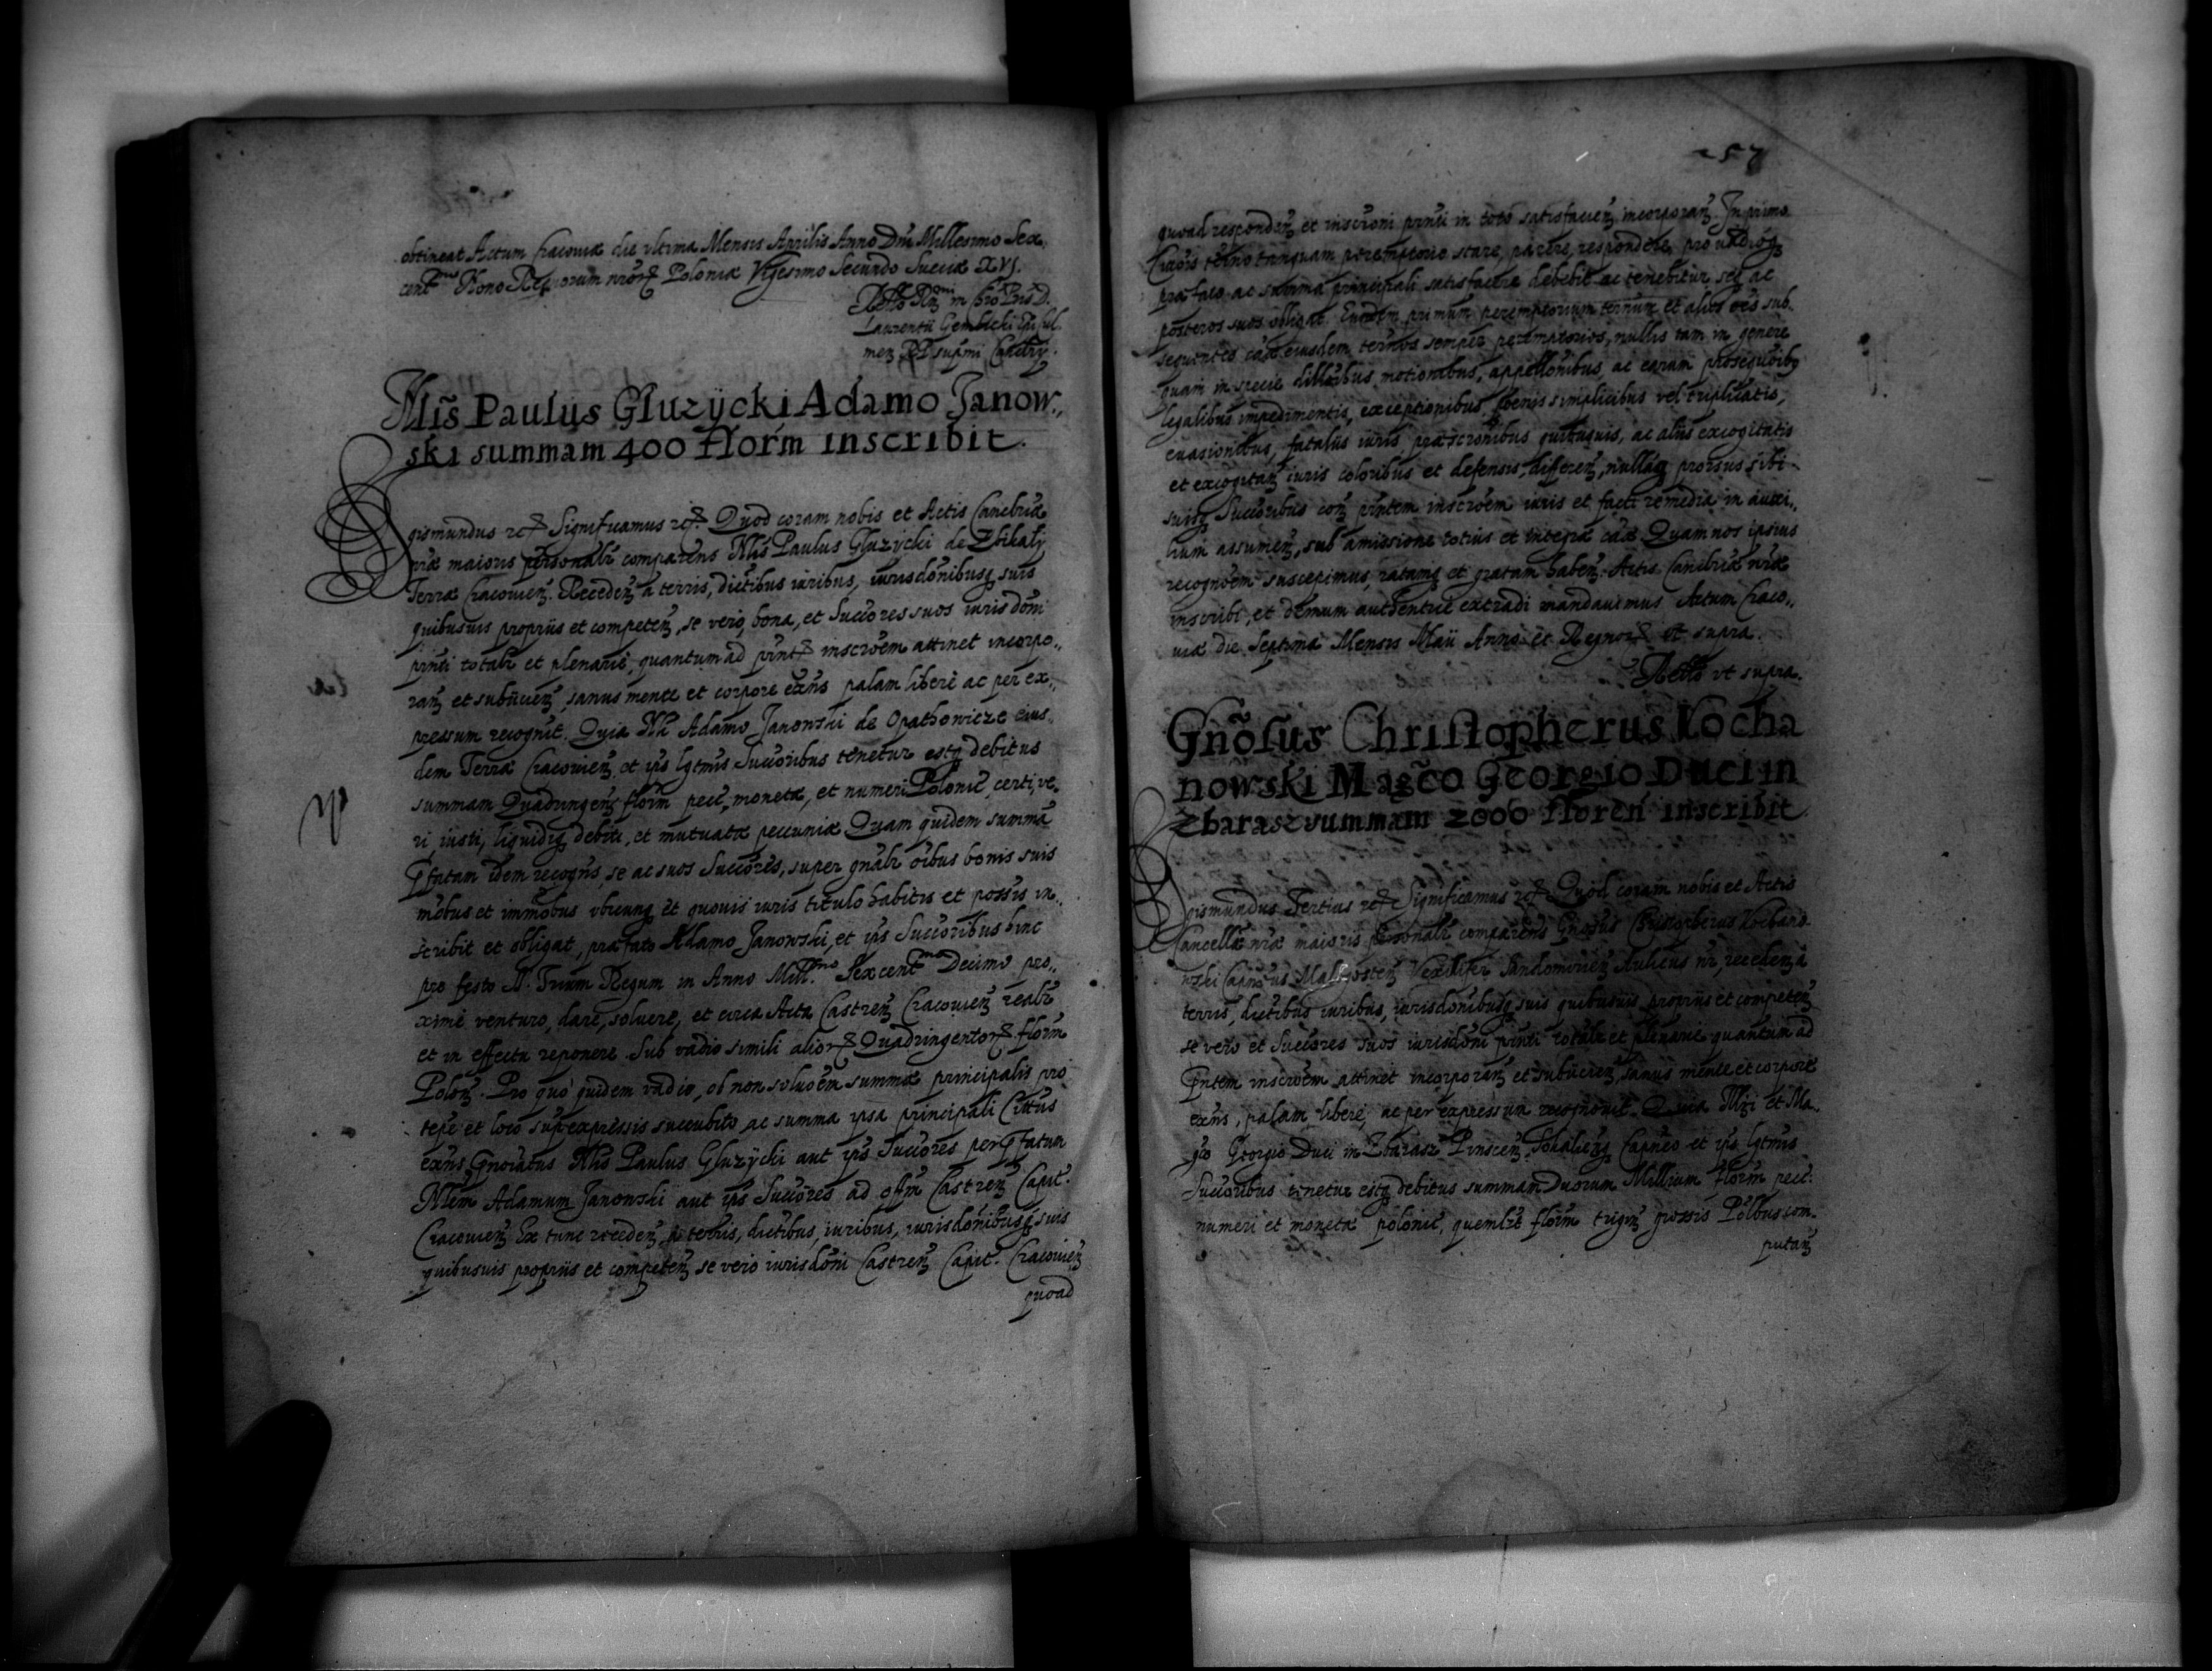 obtineat Actum Cracouiæ die vltima Mensis Aprilis Anno Dni Millesimo Sex„
centmo Nono Regnorum nror Poloniæ Vigesimo Secundo Sueciæ XVI.
Laurentii Gembicki Epi Cul„
men R P supmi Cancrij.
Nlis Paulus Gluzÿcki Adamo Janow„
ski summam 400 florm inscribit.
Sigismundus rc Significamus rc Quod coram nobis et Actis Cancriæ
nræ maioris personalr comparens Nlis Paulus Gluzycki de Zbikały
Terræ Cracouien. Receden a terris, dictibus iuribus, iurisdonibusq suis
quibusuis proprijs et competen, se vero, bona, et Succores suos iurisdoni
pnti totalr et plenarie, quantum ad pnt inscroem attinet incorpo„
ran et subiicien, sanus mente et corpore exns palam libere ac per ex„
pressum recognit. Quia Nli Adamo Janowski de Opathowicze eius„
dem Terræ Cracouien et ips lgtmis Succoribus tenetur estq debitus
summam Quadringen florm pec, monetæ, et numeri Polonic, certi, ve„
ri, iusti, liquidiq debiti, et mutuatæ pecuniæ Quam quidem summa
pfatam idem recogns, se ac suos Succores, super gnalr oibus bonis suis
mobus et immobus vbicunq et quouis iuris titulo habitis et possis in„
scribit et obligat, præfato Adamo Janowski, et ips Succoribus hinc
pro festo S. Trium Regum in Anno Millmo Sexcentmo Decimo pro„
ximè venturo, dare, soluere, et circa Acta Castren Cracouien realr
et in effectu reponere. Sub vadio simili alior Quadringentor florm
Polon. Pro quo quidem vadio, ob non soluoem summæ principalis pro
tepe et loco supexpressis succubito ac summa ipsa principali Cittus
exns pnoiatus Nlis Paulus Gluzÿcki aut ips Succores per pfatum
Nlem Adamum Janowski aut ips Succores ad offm Castren Capit.
Cracouien Ex tunc receden a terris, dictibus, iuribus, iurisdonibusq suis
quibusuis proprijs et competen se vero iurisdoni Castren Capit. Cracouien
quoad
257
quoad responden et inscroni pnti in toto satisfacien, incorporan. In primo
Citaois termo tanquam peremptorie stare, parere, respondere, pro vadioq
præfato ac summa principali satisfacere debebit ac tenebitur seq ac
posteros suos obligat. Eundem primum peremptorium ternum et alios oes sub„
sequentes cæ eiusdem ternos semper peremptorios, nullis tam in genere
quam in specie dillaibus, motionibus, appellonibus, ac earum prosequoibq
legalibus impedimentis, exceptionibus, poenis simplicibus vel triplicatis,
euasionibus, fatalijs iuris præscronibus quibusuis, ac alijs excogitatis
et excogitan iuris coloribus et defensis, differen, nullaq prorsus sibi
suisq Succoribus con pntem inscroem iuris et facti remedia in auxi„
lium assumen, sub amissione totius et integræ cæ Quam nos ipsius
recognoem suscepimus, ratamq et gratam haben. Actis Cancriæ nræ
inscribi, et demum authentice extradi mandauimus Actum Craco„
uiæ die Septima Mensis Maii Anno et Regnor vt supra.
Relo vt supra.
Gnosus Christopherus Kocha
nowski Magco Georgio Duci in
Zbarasz summam 2000 floren inscribit
Sigismundus Tertius rc Significamus rc Quod coram nobis et Actis
Cancellæ nræ maioris personalr comparens Gnosus Christopherus Kochano„
wski Capneus Malhosten Vexillifer Sandomirien Aulicus nr, receden a
terris, dictibus iuribus, iurisdonibusq suis quibusuis proprijs et competen
se vero et Succores suos iurisdoni pnti totalr et plenarie quantum ad
pntem inscroem attinet incorporan et subiicien, sanus mente et corpore
exns, palam, libere, ac per expressum recognouit. Quia Illri et Ma„
gco Georgio Duci in Zbarasz Pinscen, Sokaliensq Capneo et ips lgtmis
Succoribus tenetur estq debitus summam Duorum Millium florm pec:
numeri et monetæ polonic, quemlrt florm trign grossis Polbus com„
putan